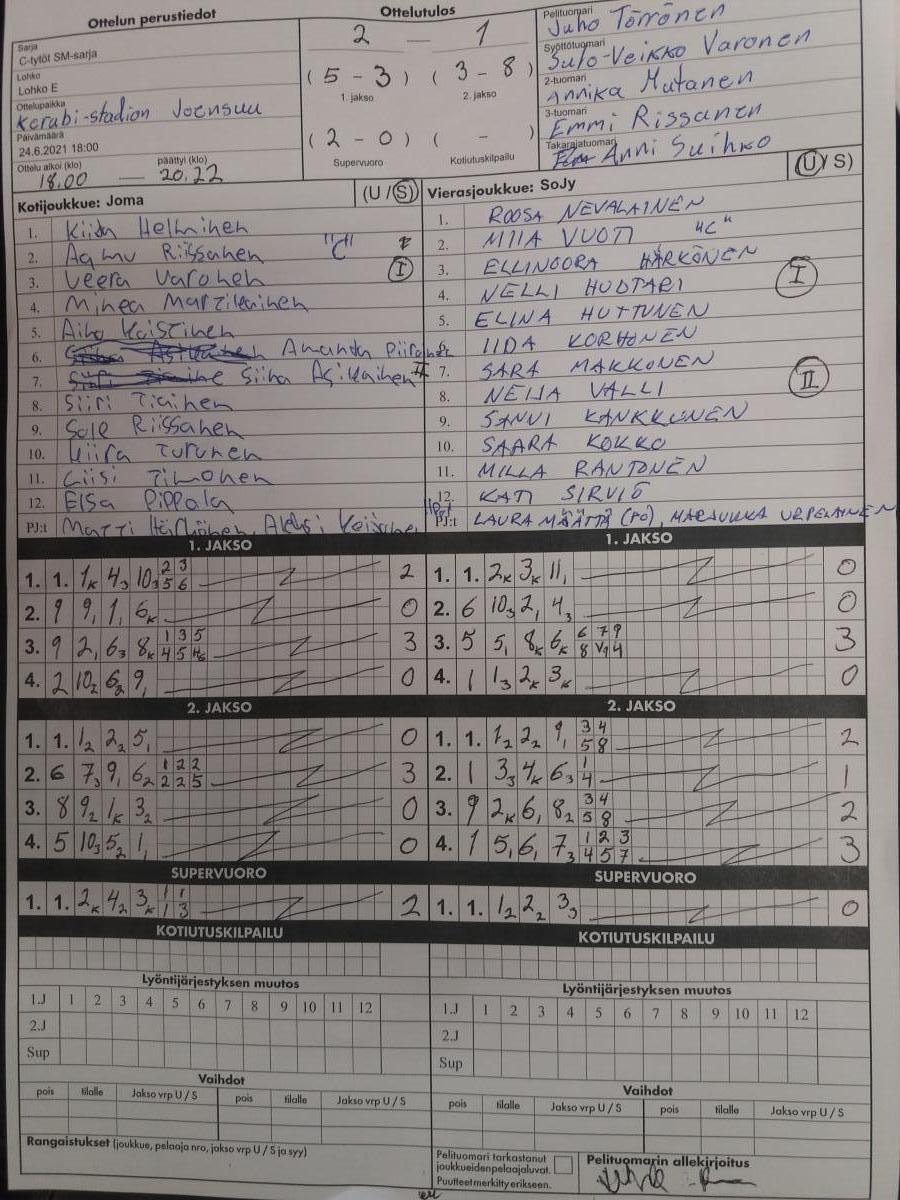 Ottelun perustiedot
Sarja
C-tytöt SM-sarja
Lohko
Lohko E
Ottelupaikka
Kerubi-stadion Joensuu
Päivämäärä
24.6.2021 18:00
Ottelu alkoi (klo) päättyi (klo)
18.00 — 20.22
Ottelutulos
2 — 1
(5 - 3) (3 - 8)
1. jakso 2. jakso
(2 - 0) ( - )
Supervuoro Kotiutuskilpailu
Pelituomari
Juho Törrönen
Syöttötuomari
Sulo-Veikko Varonen
2-tuomari
Annika Mutanen
3-tuomari
Emmi Rissanen
Takarajatuomari
Anni Suihko
Kotijoukkue: Joma (U / S)
1. Kiida Helminen
2. Aamu Riissanen "C"
3. Veera Varonen I
4. Minea Martikainen
5. Aino Koistinen
6. Amanda Piiroinen
7. Siina Asikainen II
8. Siiri Tiainen
9. Sale Riissanen
10. Kiira Turunen
11. Liisi Timonen
12. Elsa Pippola
PJ:t Matti Härkönen, Aleksi
Vierasjoukkue: SoJy (U / S)
1. ROOSA NEVALAINEN
2. MIIA VUOTI "C"
3. ELLINOORA HÄRKÖNEN
4. NELLI HUOTARI I
5. ELINA HUTTUNEN
6. IIDA KORHONEN
7. SARA MAKKONEN
8. NEIJA VALLI II
9. SANNI KANKKUNEN
10. SAARA KOKKO
11. MILLA RANTONEN
12. KATI SIRVIÖ
PJ:t LAURA MÄÄTTÄ (PO), MARJUKKA URPELAINEN
1. JAKSO
1. 1. 1K 43 103 2 3 5 6 2
2. 9 91 11 6K 0
3. 9 21 63 8K 1 3 5 4 5 3
4. 2 102 62 91 0
1. JAKSO
1. 1. 2K 3K 111 0
2. 6 103 21 43 0
3. 5 51 8K 6K 6 7 9 8 4 3
4. 1 13 2K 3K 0
2. JAKSO
1. 1. 12 22 51 0
2. 6 73 91 62 1 2 2 2 2 5 3
3. 8 92 1K 32 0
4. 5 103 52 11 0
2. JAKSO
1. 1. 12 22 91 3 4 5 8 2
2. 1 33 4K 63 1 4 1
3. 9 2K 61 82 3 4 5 8 2
4. 1 51 61 73 1 2 3 4 5 7 3
SUPERVUORO
1. 1. 2K 42 3K 1 1 1 3 2
SUPERVUORO
1. 1. 12 22 33 0
KOTIUTUSKILPAILU
KOTIUTUSKILPAILU
Lyöntijärjestyksen muutos
1.J 1 2 3 4 5 6 7 8 9 10 11 12
2.J
Sup
Lyöntijärjestyksen muutos
1.J 1 2 3 4 5 6 7 8 9 10 11 12
2.J
Sup
Vaihdot
pois tilalle Jakso vrp U / S pois tilalle Jakso vrp U / S
Vaihdot
pois tilalle Jakso vrp U / S pois tilalle Jakso vrp U / S
Rangaistukset (joukkue, pelaaja nro, jakso vrp U / S ja syy)
Pelituomari tarkastanut
joukkueiden pelaajaluvat.
Puutteet merkitty erikseen.
Pelituomarin allekirjoitus